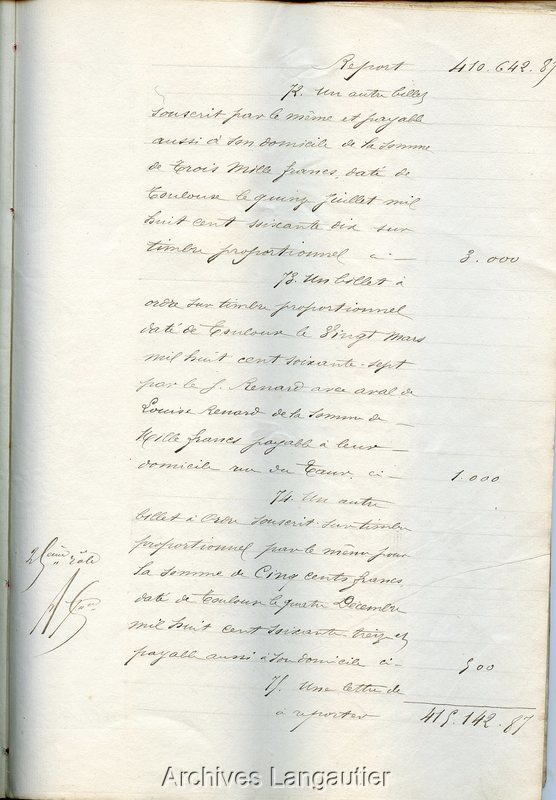 Report 410.642.87
72. Un autre billet
souscrit par le même et payable
aussi à son domicile de la somme
de Trois Mille francs, daté de
Toulouse le quinze Juillet mil
huit cent soixante dix sur
timbre proportionnel ci — 3.000
73. Un billet à
ordre sur timbre proportionnel
daté de Toulouse le Vingt Mars
mil huit cent soixante-sept
par le J. Renard avec aval de
Louise Renard de la somme de —
Mille francs payable à leur —
domicile rue du Taur, ci — 1.000
74. Un autre
billet à ordre souscrit sur timbre
proportionnel par le même pour
la somme de Cinq cents francs
daté de Toulouse le quatre Décembre
mil huit cent soixante-treize et
payable aussi à son domicile ci - 500
75. Une lettre de
à reporter 415.142.87
25ème rôle
Archives Langautier